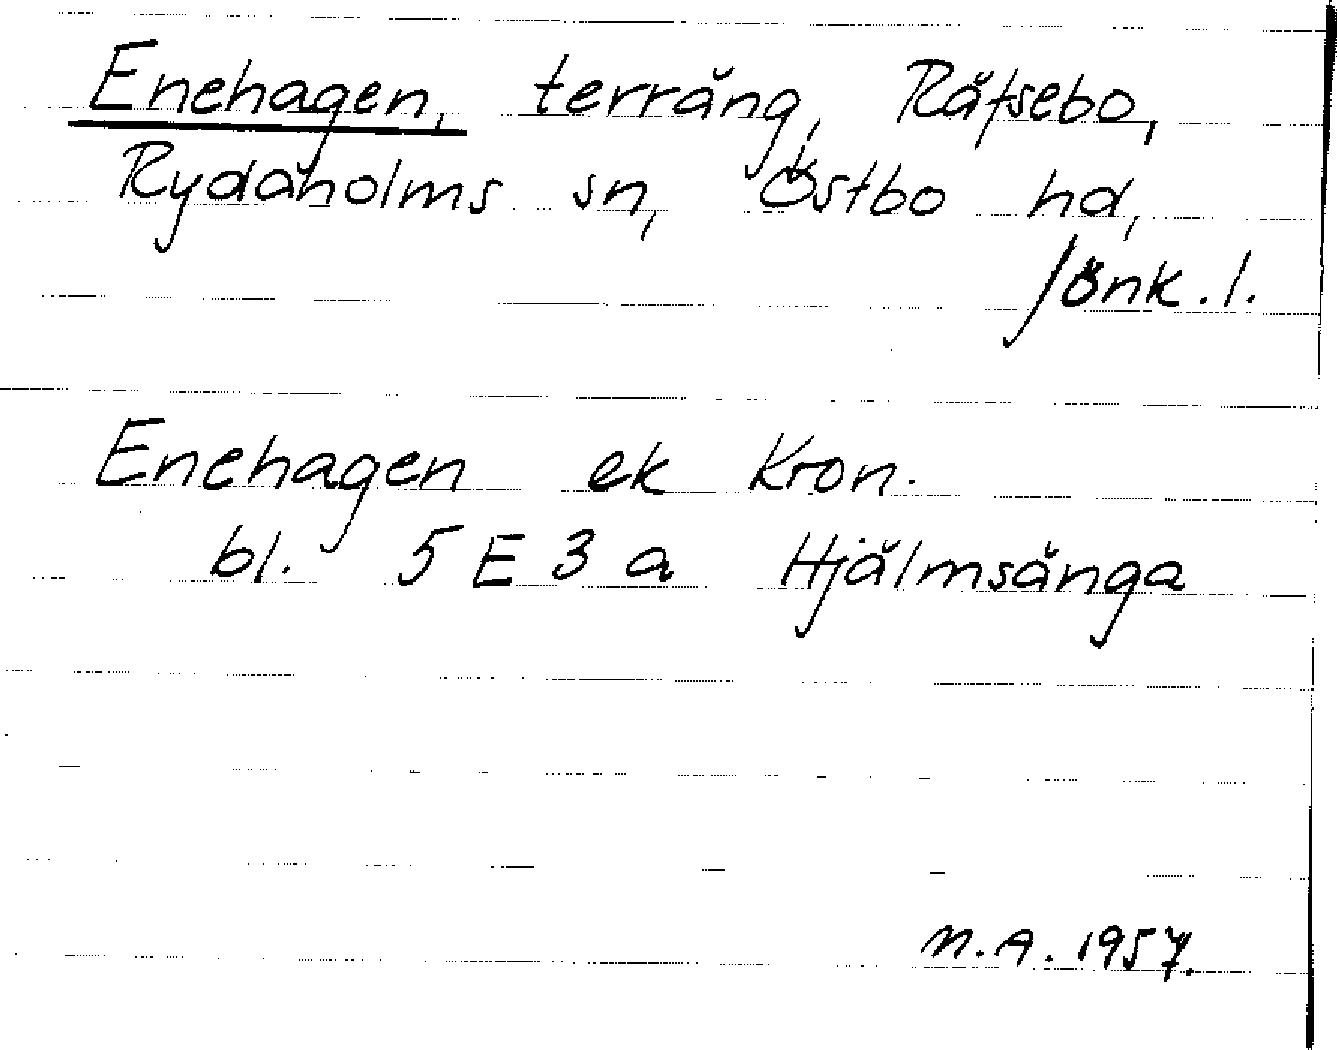 Enehagen, terräng, Räfsebo,
Rydaholms sn, Östbo hd,
Jönk. l.
Enehagen ek Kron.
bl. 5 E 3 a Hjälmsänga
N.A. 1957.